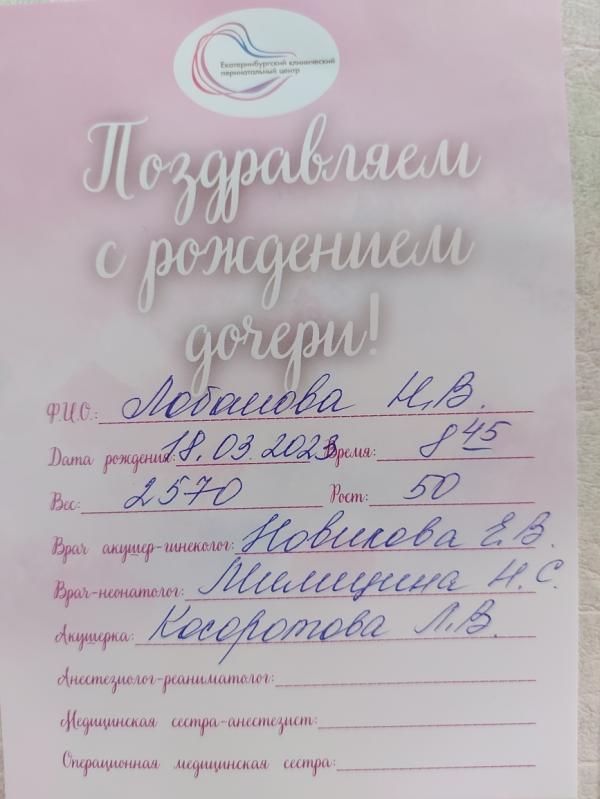 Екатеринбургский клинический
перинатальный центр
Поздравляем
с рождением
дочери!
Ф.И.О.: Лобанова Н.В.
Дата рождения: 18.03.2023 Время: 8 45
Вес: 2570 Рост: 50
Врач акушер-гинеколог: Новикова Е.В.
Врач-неонатолог: Н.С.
Акушерка: Косоротова Л.В.
Анестезиолог-реаниматолог:
Медицинская сестра-анестезист:
Операционная медицинская сестра: